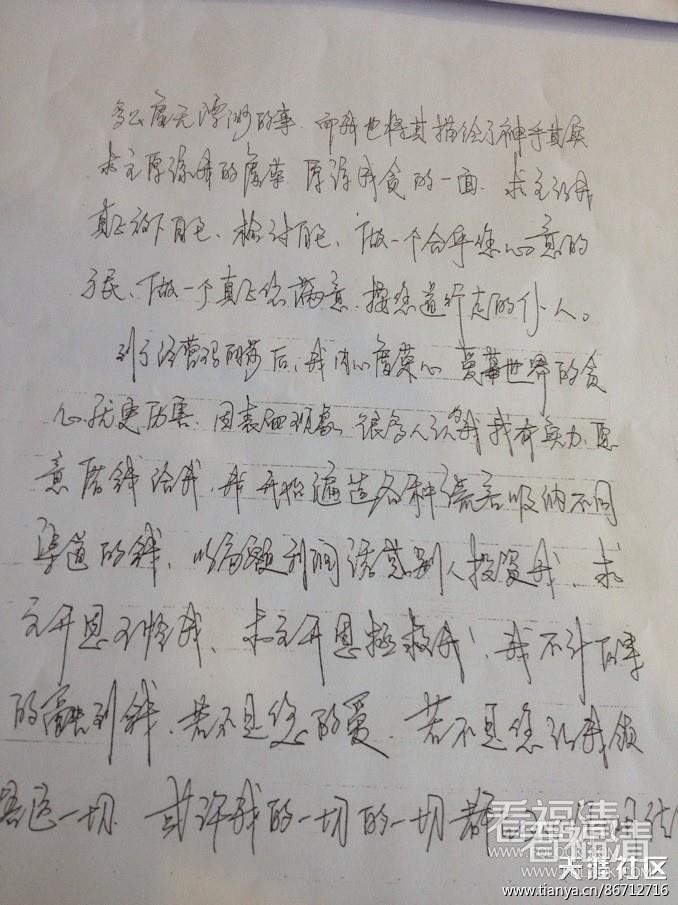 多么虚无漂渺的事,而我也将其描绘了神乎其实
求主原谅我的虚荣,原谅我贪的一面,求主让我
真正放下自己、检讨自己、做一个合乎您心意的
子民、做一个真正您满意、按您道行走的仆人。
到了经营玛的莎后,我内心虚荣心 爱慕世界的贪
心就更厉害,因表面现象,很多人认为我有实力、愿
意借钱给我,我开始编造各种谎言吸纳不同
渠道的钱,以高额利润诱惑别人投资我,求
主开恩 我,求主开恩拯救我!我不计后果
的 到钱,若不是您的爱,若不是您让我领
这一切,或许我的一切的一切都
看福清
天涯社区
www.tianya.cn/86712716